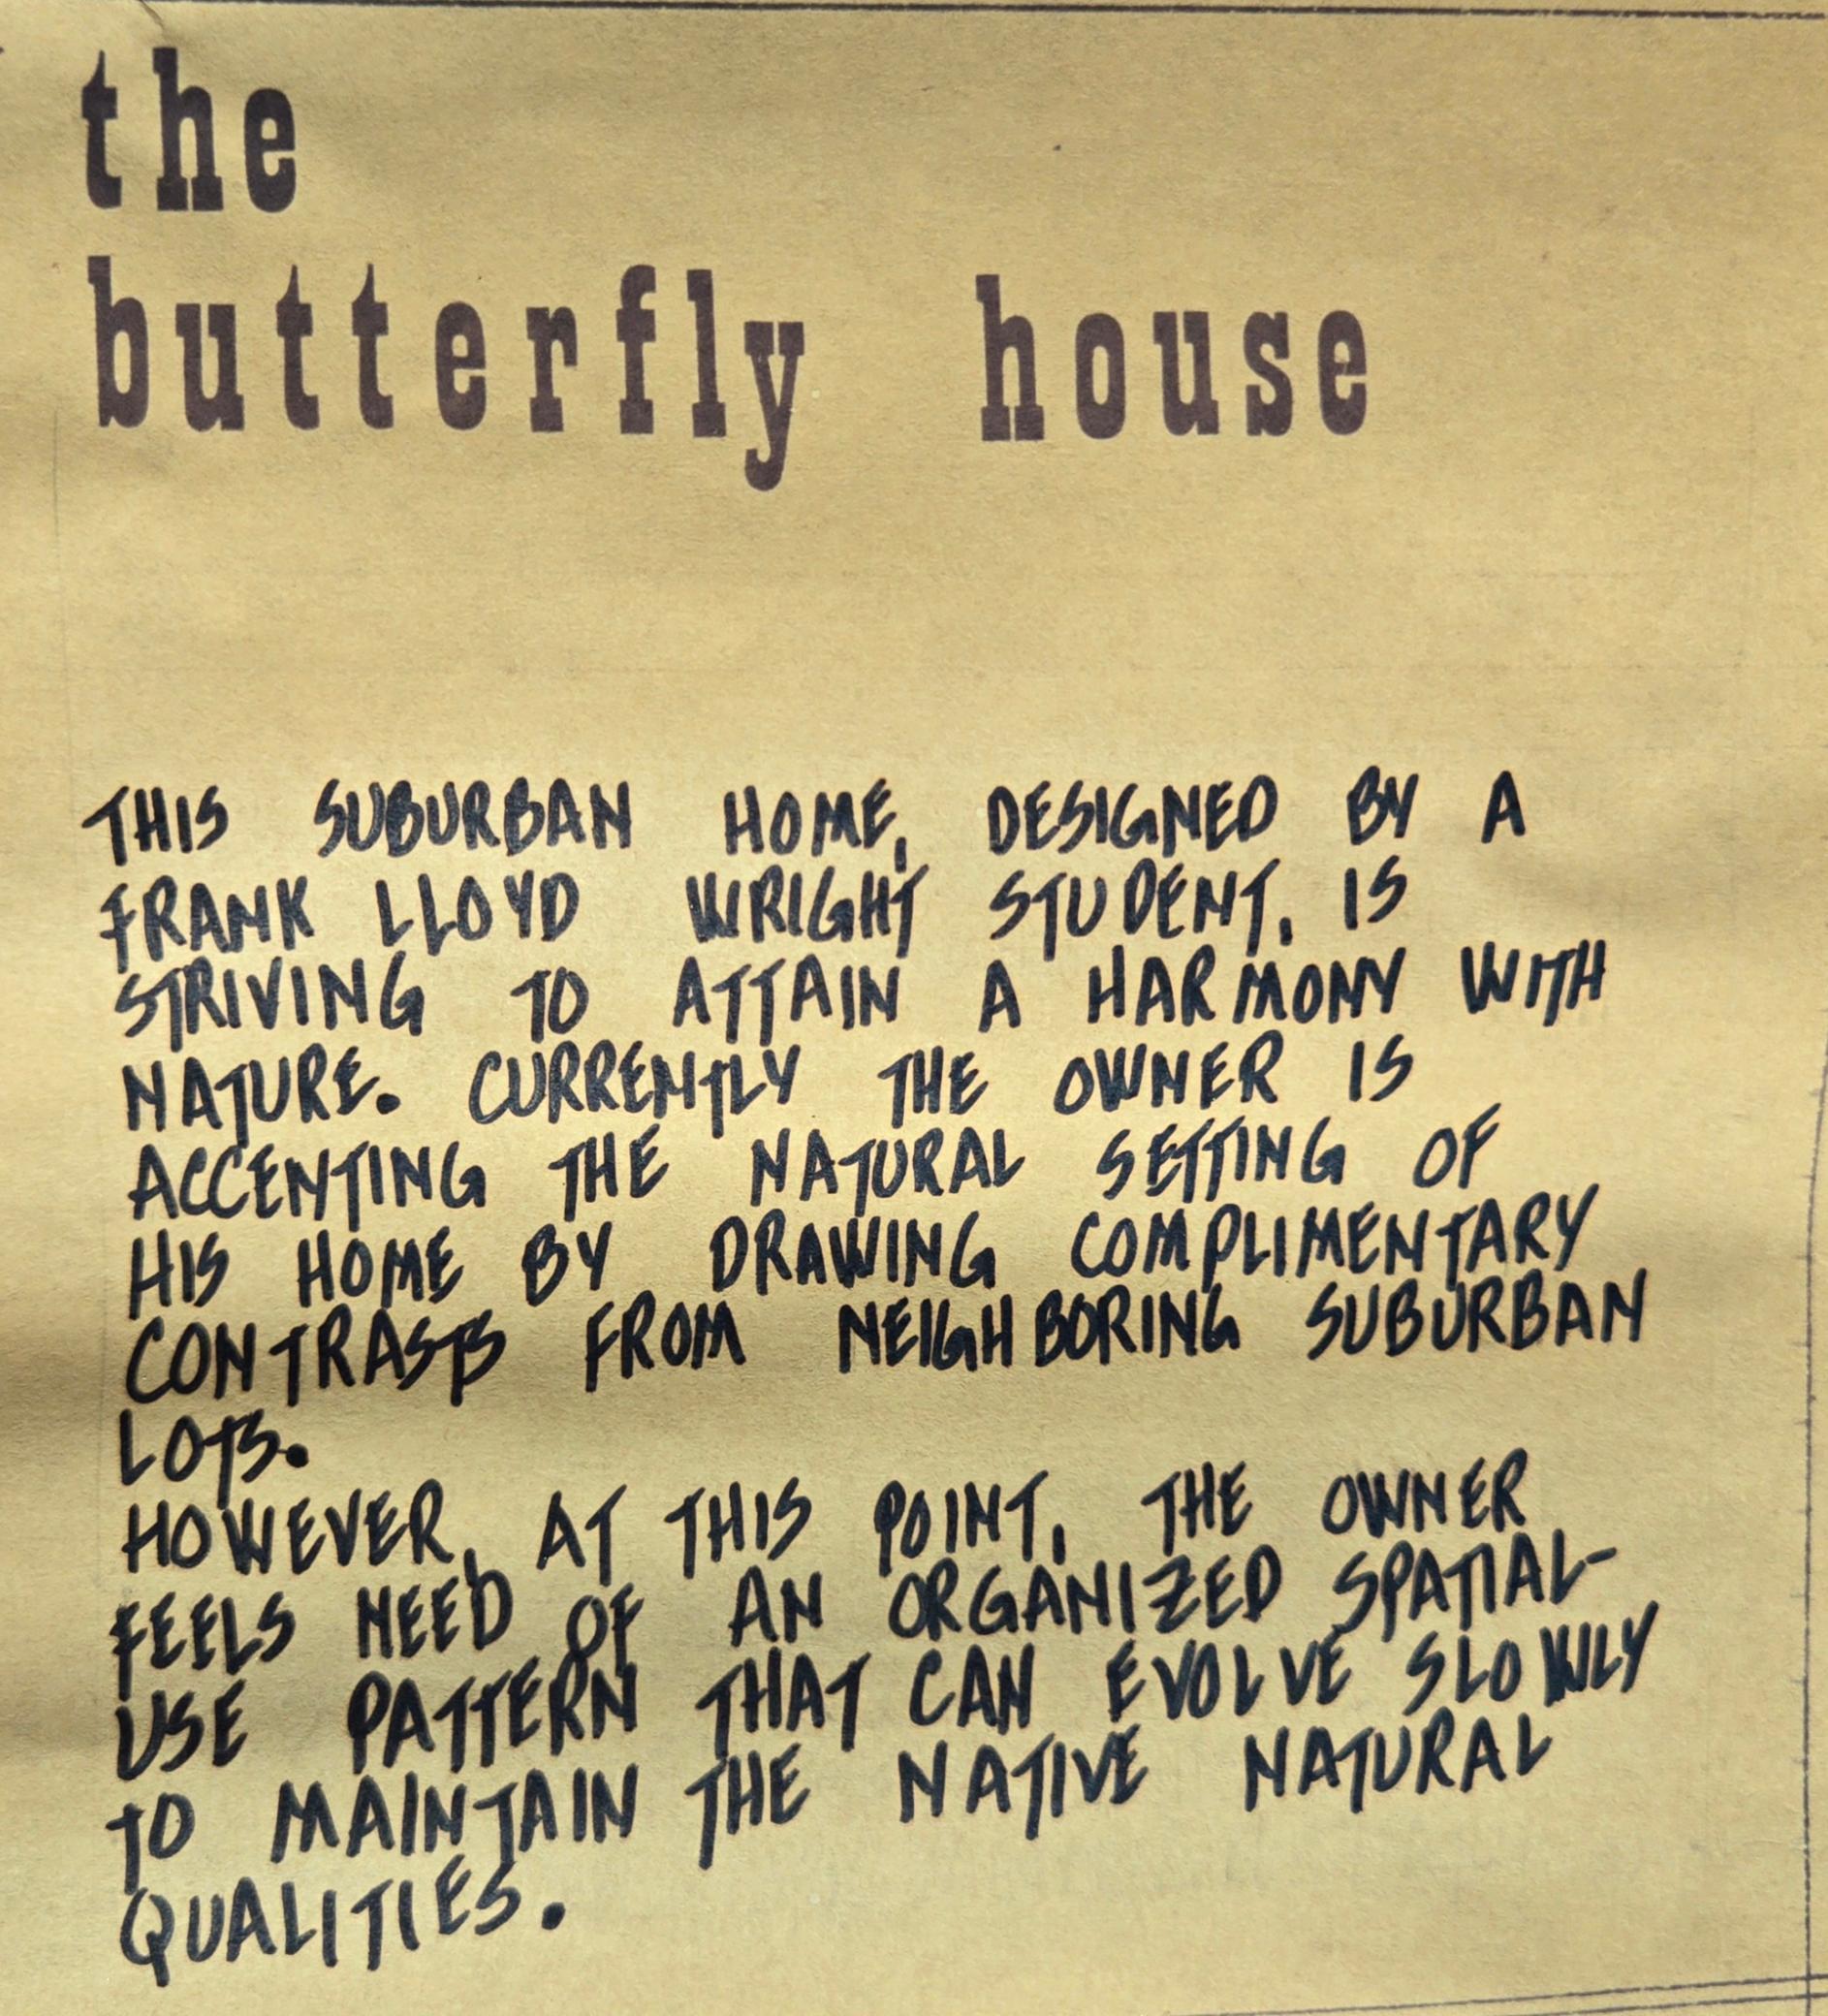 the
butterfly house
THIS SUBURBAN HOME, DESIGNED BY A
FRANK LLOYD WRIGHT STUDENT, IS
STRIVING TO ATTAIN A HARMONY WITH
NATURE. CURRENTLY THE OWNER IS
ACCENTING THE NATURAL SETTING OF
HIS HOME BY DRAWING COMPLIMENTARY
CONTRASTS FROM NEIGHBORING SUBURBAN
LOTS.
HOWEVER, AT THIS POINT, THE OWNER
FEELS NEED OF AN ORGANIZED SPATIAL-
USE PATTERN THAT CAN EVOLVE SLOWLY
TO MAINTAIN THE NATIVE NATURAL
QUALITIES.